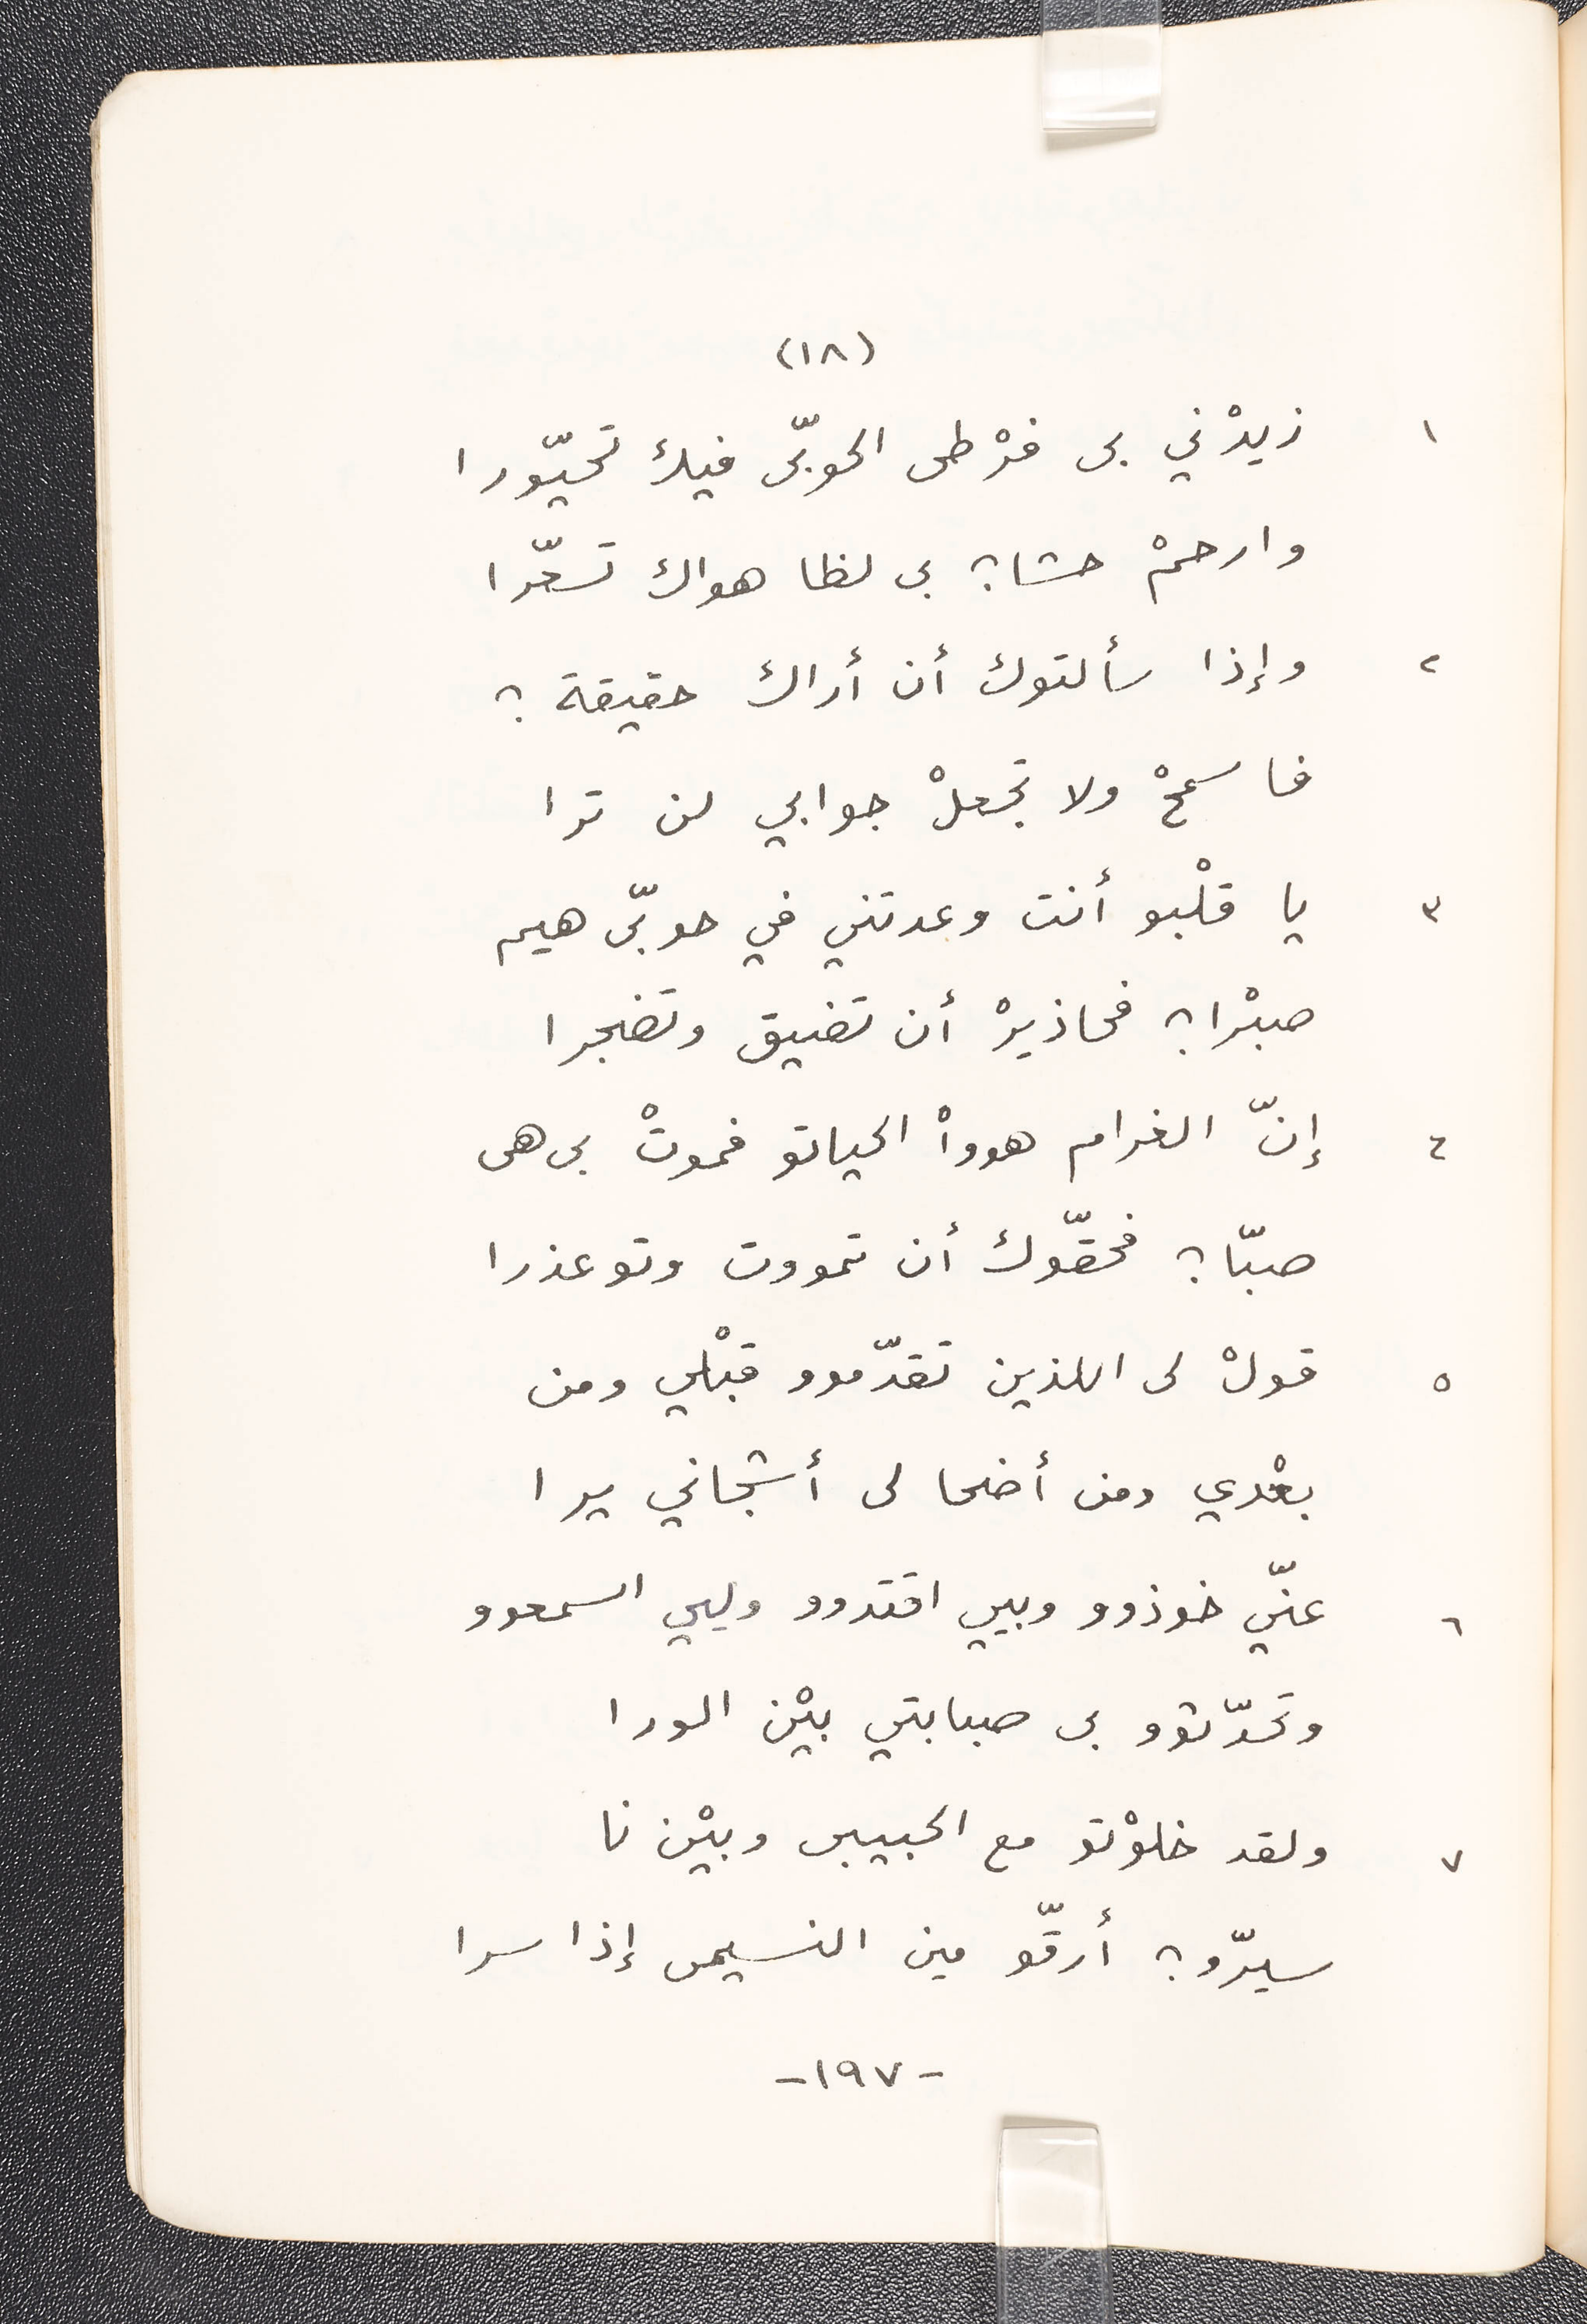 (١٨)
١ زيدْني بى فرْطى الحوبّى فيك تحيّورا
وارحمْ حشا؟ بى لظا هواك تسعّرا
٢ وإذا سألتوك أن أراك حقيقة ؟
فاسمحْ ولا تجعلْ جوابي لن ترا
٣ يا قلْبو أنت وعدتني في حوبّى هيم
صبْرا؟ فحاذيرْ أن تضيق وتضجرا
٤ إنّ الغرام هوواْ الحياتو فموتْ بى هى
صبّا؟ فحقّوك أن تمووت وتوعذرا
٥ قولْ لى اللذين تقدّموو قبْلي ومن
بعْدي ومن أضحا لى أشجاني يرا
٦ عنّي خوذوو وبيي اقتدوو وليي اسمعوو
وتحدّثوو بى صبابتي بيْن الورا
٧ ولقد خلوْتو مع الحبيبى وبيْن نا
سيرّو؟ أرقّو مين النسيمى إذا سرا
-١٩٧-